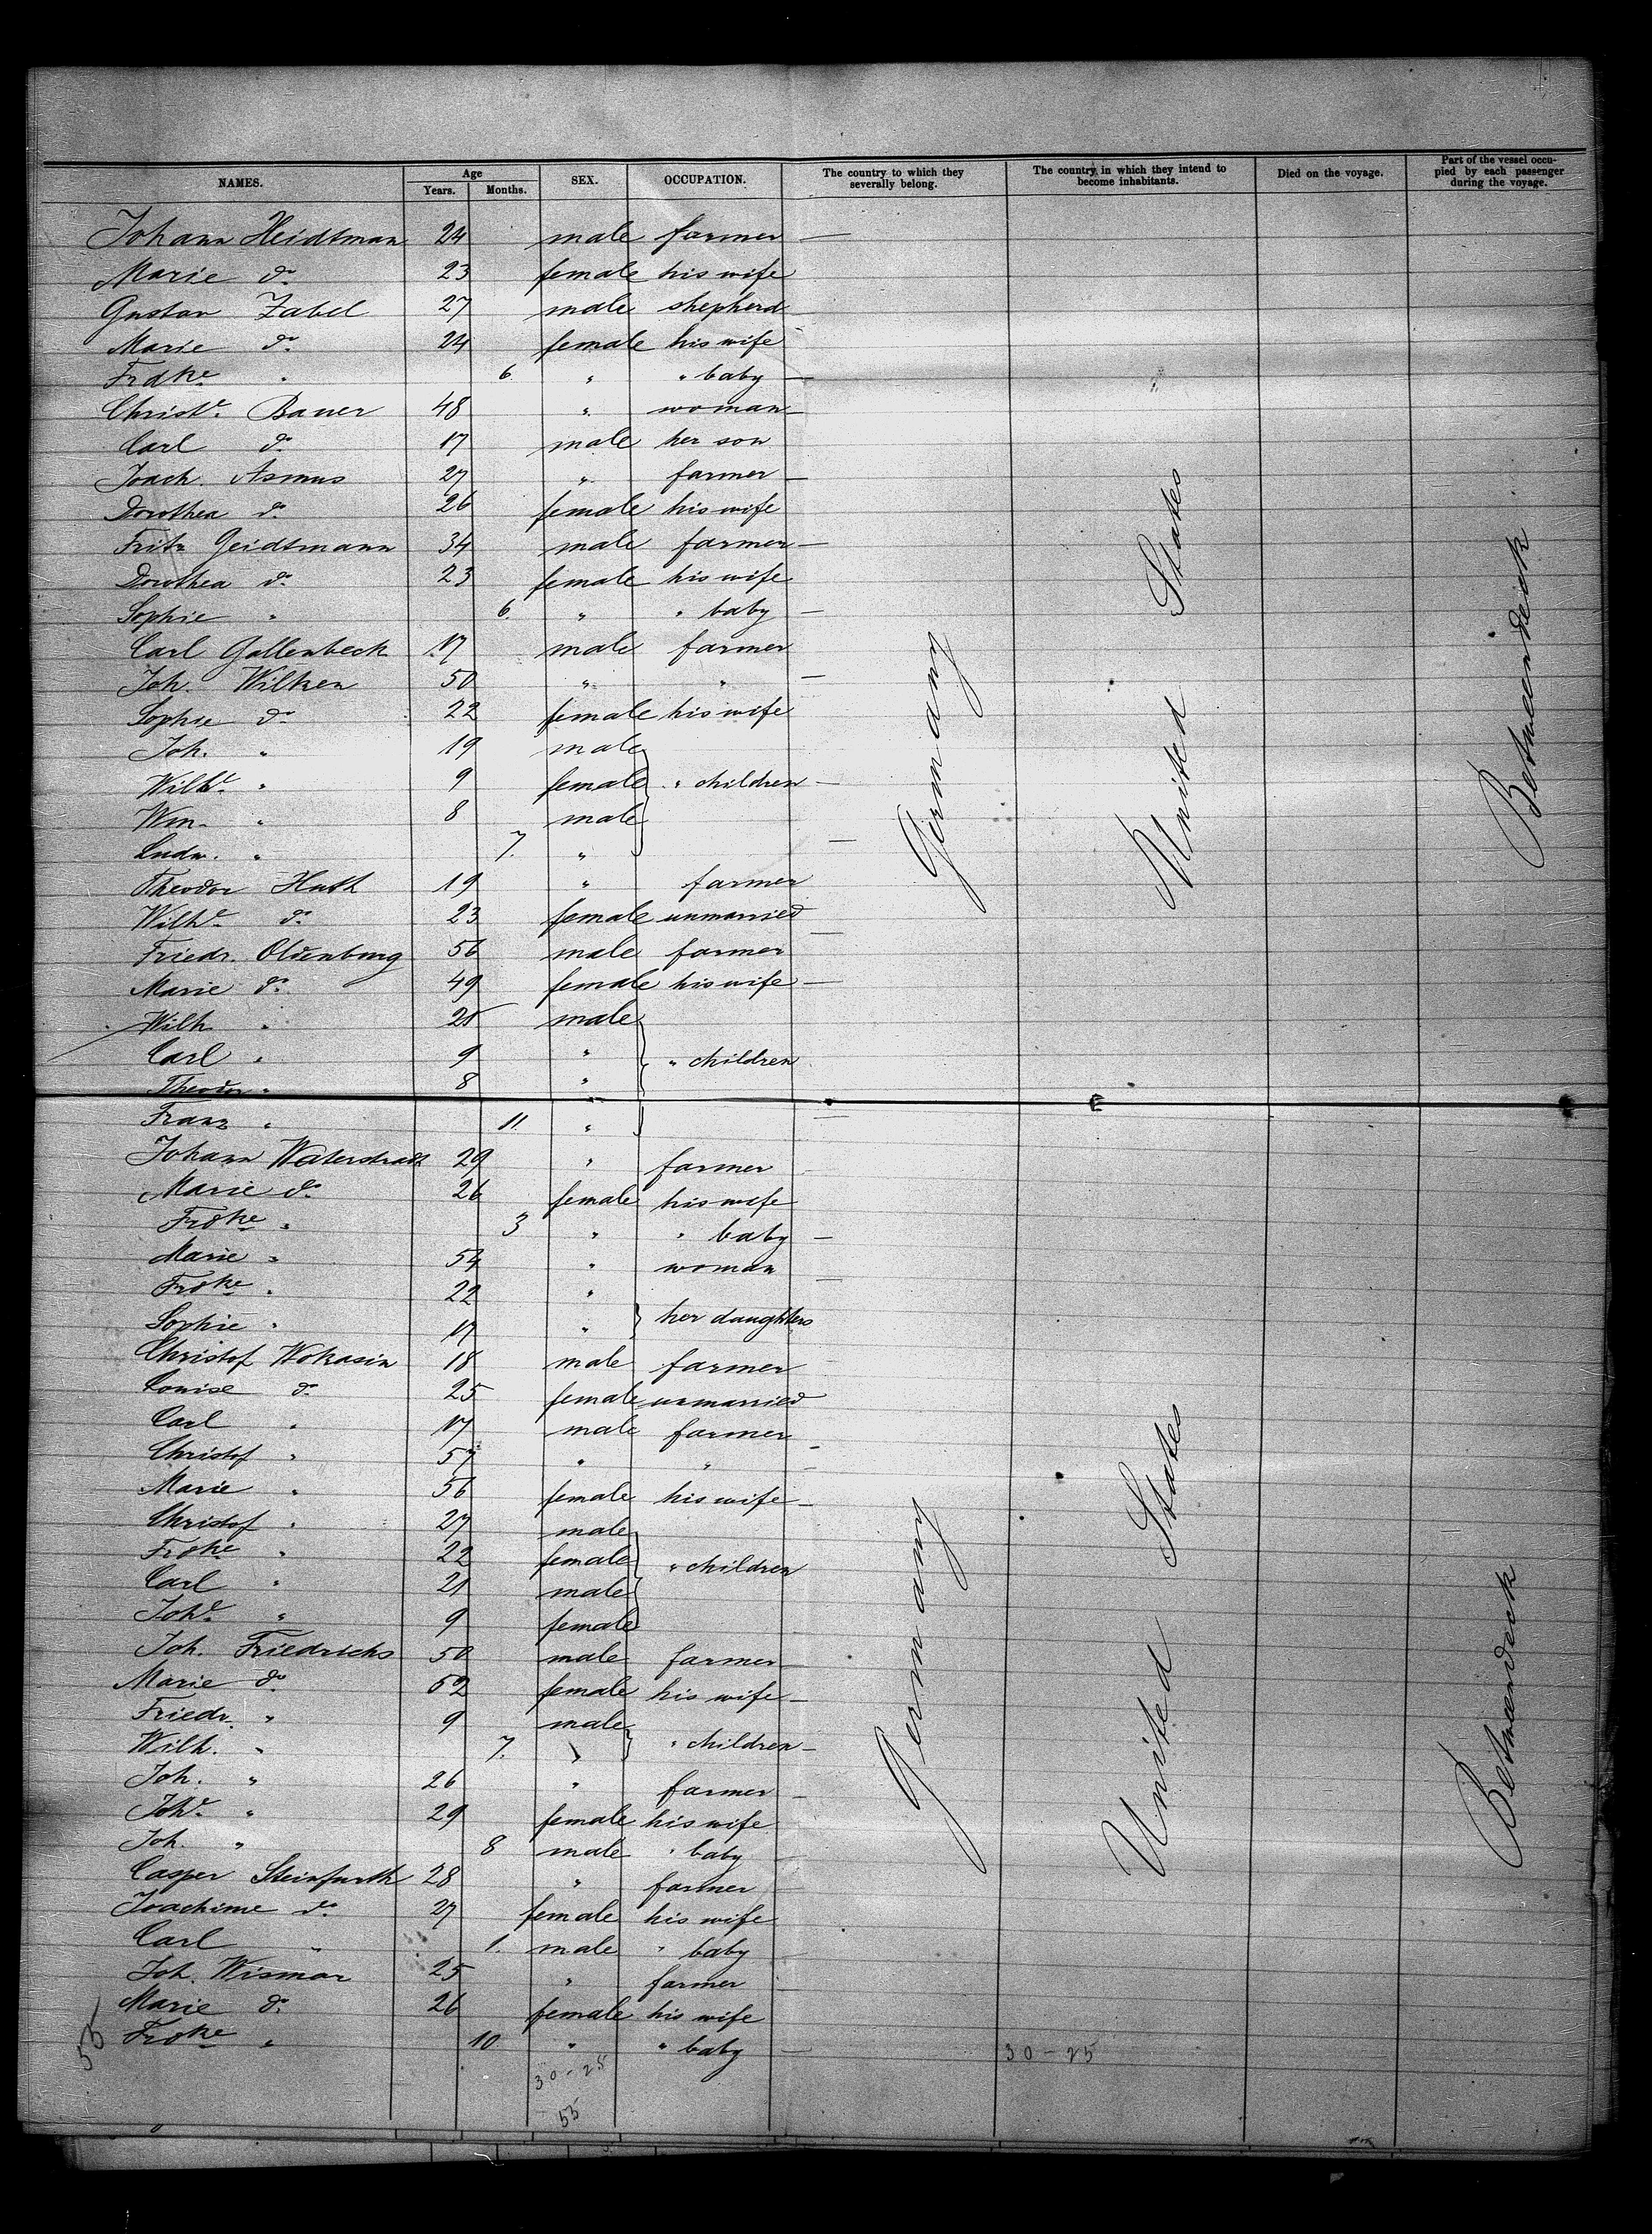 NAMES. Age Years. Months. SEX. OCCUPATION. The country to which they severally belong. The country in which they intend to become inhabitants. Died on the voyage. Part of the vessel occupied by each passenger during the voyage.
Johann Heidtman 24 male farmer —
Marie do 23 female his wife
Gustav Zabel 27 male shepherd
Marie do 24 female his wife
Frdke " 6. " " baby —
Christe. Bauer 48 " woman
Carl do 17 male her son
Joach. Asmus 27 " farmer —
Dorothea do 26 female his wife
Fritz Geidtmann 34 male farmer —
Dorothea do 23 female his wife
Sophie " 6. " " baby —
Carl Gollenbeck 17 male farmer
Joh. Wilken 50 " " —
Sophie do 22 female his wife
Joh. " 19 male
Wilhe. " 9 female " children —
Wm. " 8 male
Ludw. " 7. " —
Theodor Huth 19 " farmer
Wilhe. do 23 female unmarried —
Friedr. Oldenburg 56 male farmer
Marie do 49 female his wife —
Wilh " 25 male
Carl " 9 " " children
Theodor " 8 "
Franz " 11. " —
Johann Waterstradt 29 " farmer
Marie do 26 female his wife
Frdke " 3 " " baby —
Marie " 54 " woman
Frdke " 22 " —
Sophie " 17 " her daughters
Christof Wokasin 18 male farmer
Louise do 25 female unmarried
Carl " 17 male farmer
Christof " 57 " " —
Marie " 56 female his wife —
Christof " 27 male
Frdke " 22 female " children
Carl " 21 male
Johe. " 9 female
Joh. Friedrichs 50 male farmer
Marie do 52 female his wife —
Friedr. " 9 male
Wilh. " 7. " " children —
Joh. " 26 " farmer —
Johe. " 29 female his wife
Joh. " 8 male " baby —
Casper Steinfurth 28 " farmer
Joachime do 27 female his wife
Carl " 1. male " baby —
Joh. Wismar 25 " farmer
Marie do 26 female his wife
Frdke " 10 " " baby —
55
30-25
55
30-25
Germany
United States
Betweendeck
Germany
United States
Betweendeck